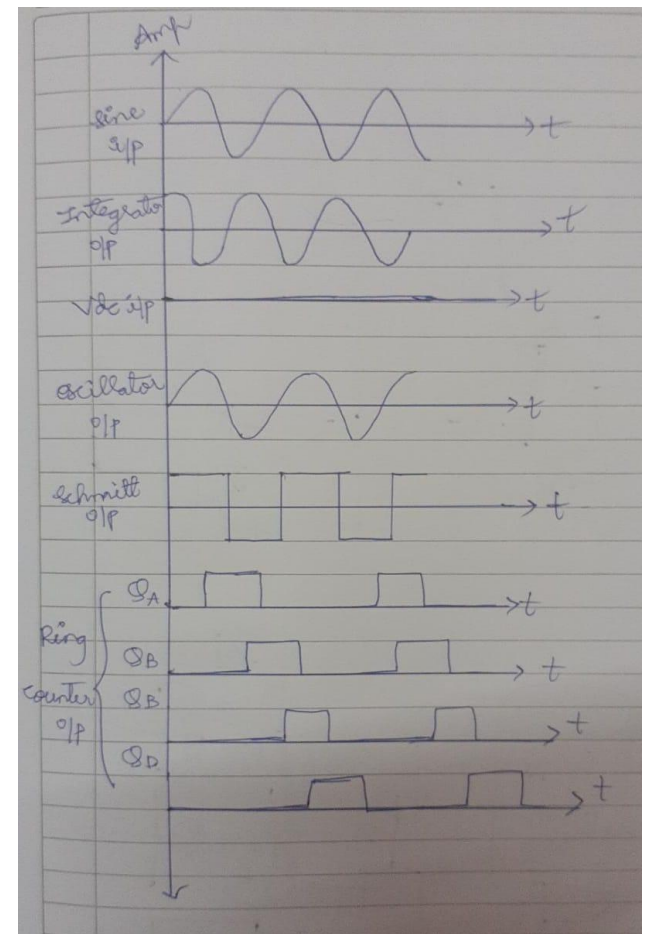 Amp
sine
i/p
t
Integrator
o/p
t
Vdc i/p
t
oscillator
o/p
t
schmitt
o/p
t
QA
t
Ring
counter
o/p
QB
t
QB
t
QD
t